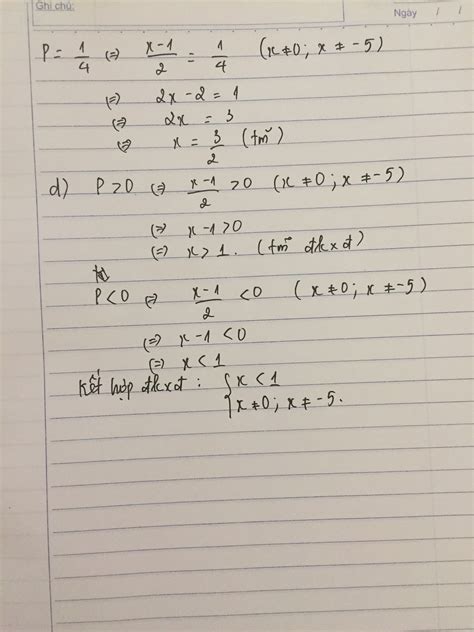 Ghi chú:
Ngày / /
P = 1/4 (=) x-1/2 = 1/4 (x≠0; x ≠ -5)
(=) 2x - 2 = 1
(=) 2x = 3
(=) x = 3/2 (tm)
d) P>0 (=) x-1/2 >0 (x≠0; x≠-5)
(=) x-1>0
(=) x>1. (tm đkxđ)
P<0 (=) x-1/2 <0 (x≠0; x≠-5)
(=) x-1 <0
(=) x<1
Kết hợp đkxđ: { x<1
x≠0; x≠-5.